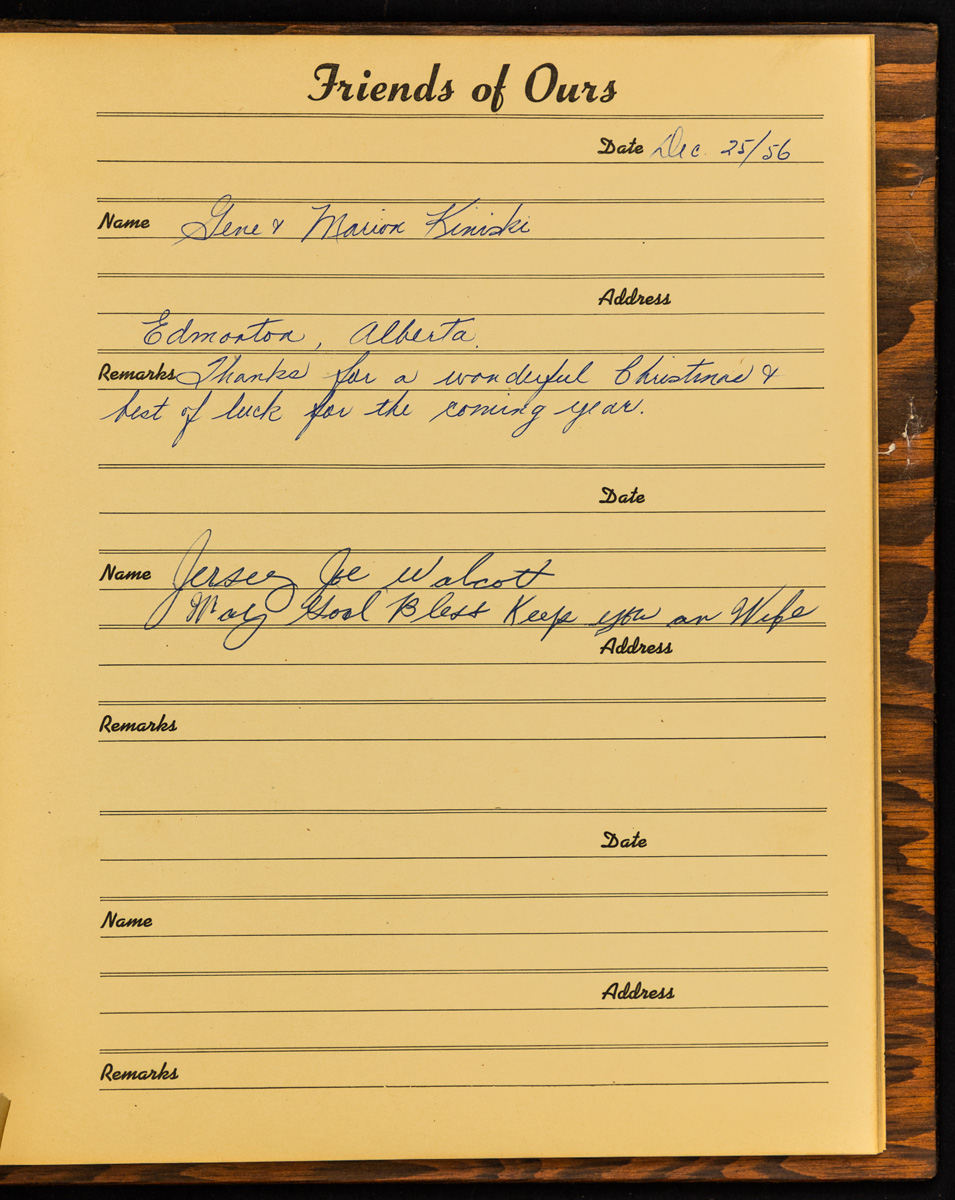 Friends of Ours
Date Dec. 25/56
Name Gene & Marion Kiniski
Address
Edmonton, Alberta.
Remarks Thanks for a wonderful Christmas &
best of luck for the coming year.
Date
Name Jersey Joe Walcott
May God Bless Keep you an Wife
Address
Remarks
Date
Name
Address
Remarks